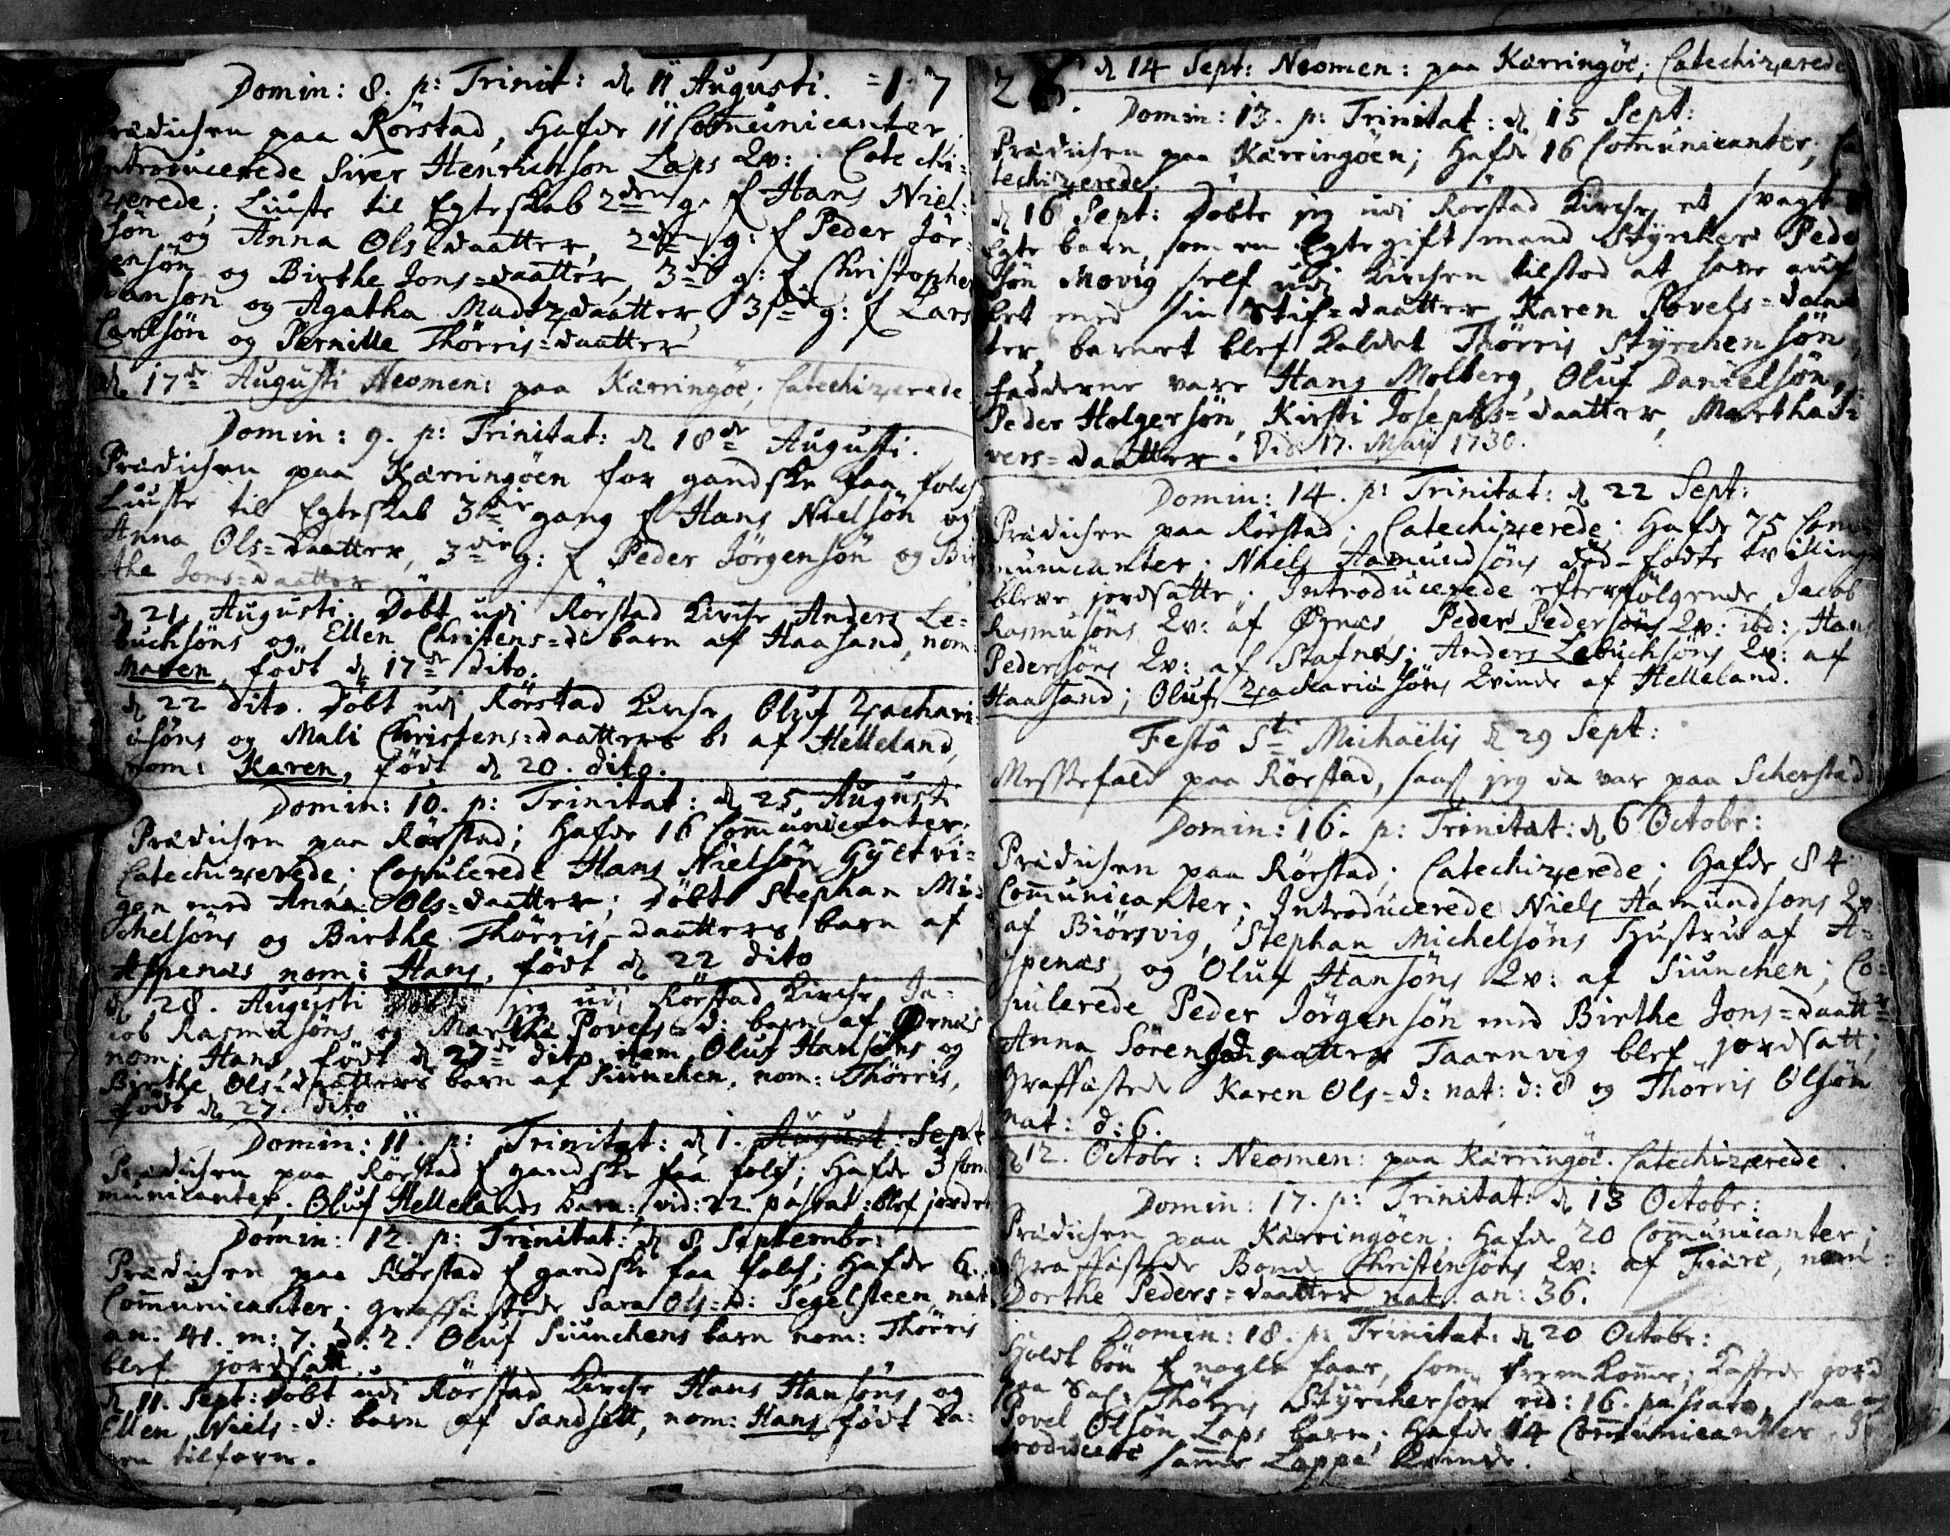 Domin: 8. p: Trinit: d 11 Augusti. =1 7
Prædichen paa Rörstad, Hafde 11 Communicanter
Introducerede Siver Henrichsøn Laps Qv: . Catechi-
zerede; Liuste til Egteskab 2den g. f Hans Niel-
søn og Anna Ols-daatter, 2den g: f Peder Jör-
gensøn og Birthe Jons=daatter, 3die g: f Christopher
Hansøn og Agatha Madtz daatter, 3die g: f Lars
Carlsøn og Pernille Thörris=daatter
d 17de Augusti Neomen: paa Kærringöe, Catechizerede
Domin: 9. p: Trinitat: d 18de Augusti.
Prædichen paa Kærringöen for gandske faa folch
Liuste til Egteskab 3die gang f Hans Nielsøn og
Anna Ols=daatter, 3die g: f Peder Jörgensøn og Bir
the Jons=daatter
d 21 Augusti. Döbt udi Rörstad Kirche Anders Le-
buchsøns og Ellen Christens=d: barn af Haasand, nom:
Maren, födt d 17de dito.
d 22 dito. Döbt udj Rörstad Kirche Oluf Zachari
æsøns og Mali Christens=daatters b: af Helleland,
nom: Karen, födt d 20. dito.
Domin: 10. p: Trinitat: d 25 Augusti
Prædichen paa Rörstad; Hafde 16 Communicanter;
Catechizerede; Copulerede Hans Nielsøn Gyltvi-
gen med Anna Ols=daatter; Döbte Stephan Mi-
chelsøns og Birthe Thörris-daatters barn af
Aspenæs nom: Hans, födt d 22 dito
d 28. Augusti Döbt jeg udj Rörstad Kirche Ja-
cob Rasmusøns og Marthe Povels=d: barn af Ørnæs
nom: Hans, födt d 27de dito, item Oluf Hansøns og
Birthe Ols=daatters barn af Siunchen, nom: Thörris,
födt d 27. dito
Domin: 11. p: Trinitat: d 1. August: Sept
Prædichen paa Rörstad f gandske faa folch; Hafde 3 Com
municanter. Oluf Hellelands barn: vid: 22. passat: blef jordet
Domin: 12. p: Trinitat: d 8 Septembr:
Prædichen paa Rörstad f gandske faa folch; Hafde 6.
Communicanter. graffæstede Sara Ols=d: Segelsteen nat
an: 41. m: 7. d: 2. Oluf Siunchens barn nom: Thörris
blef jordsatt.
d 11. Sept: Döbt udi Rörstad Kirche Hans Hansøns og
Ellen Niels=d: barn af Sandsett, nom: Hans födt da-
gen tilforn.
2 d 14 Sept: Neomen: paa Kærringöe; Catechizerede
Domin: 13. p: Trinitat: d 15 Sept:
Prædichen paa Kærringöen; Hafde 16 Communicanter; Ca
techizerede.
d 16 Sept: Döbte jeg udi Rörstad Kirche et svagt
Egte barn, som en Egtegift mand Styrcker Peder
søn Movig self udj Kirchen tilstod at have auf
let med sin Stif=daatter Karen Povels=daat
ter, barnet blef kaldet Thörris Styrchersøn,
fadderne vare Hans Molberg, Oluf Danielsøn,
Peder Holgersøn, Kirsti Josephs=daatter, Martha Si-
vers=daatter. Vid: 17. Maij 1730.
Domin: 14. p: Trinitat: d 22 Sept:
Prædichen paa Rörstad; Catechizerede; Hafde 75 Com
municanter; Niels Aamundsøns död-födte tvillinge
bleve jordsatte. Introducerede efterfölgende Jacob
Rasmusøns Qv: af Ørnæs, Peder Pedersøns Qv: ibd: Hans
Pedersøns Qv: af Stafnæs; Anders Lebuchsøns Qv: af
Haasand; Oluf Zachariæsøns Qvinde af Helleland.
Festô Sti Michaëlis d 29 Sept:
Messefald paa Rörstad, saas jeg da var paa Scherstad.
Domin: 16. p: Trinitat: d 6 Octobr:
Prædichen paa Rörstad; Catechizerede; Hafde 84
Communicanter; Introducerede Niels Aamundsøns Qv:
af Biörsvig, Stephan Michelsøns Hustru af A-
spenæs, og Oluf Hansøns Qv: af Siunchen; Co-
pulerede Peder Jörgensøn med Birthe Jons=daatter
Anna Sörens daatter Taarnvig blef jordsatt;
Graffæstede Karen Ols=d: nat: d: 8 og Thörris Olsøn
nat: d: 6.
d 12. Octobr: Neomen: paa Kærringöe. Catechizerede.
Domin: 17. p: Trinitat: d 13 Octobr:
Prædichen paa Kærringöen; Hafde 20 Communicanter;
Graffæstede Bonde Christensøns Qv: af Fiære, nom:
Dorthe Peders=daatter nat: an: 36.
Domin: 18. p: Trinitat: d 20 Octobr:
Holdt bön f nogle faae, som fremkomme; Kastede jord
paa Sal: Thörris Styrchersøn vid: 16. passato, saa og
Povel Olsøn Laps barn; Hafde 14 Communicanter. In
troducere samme Lappe Qvinde.